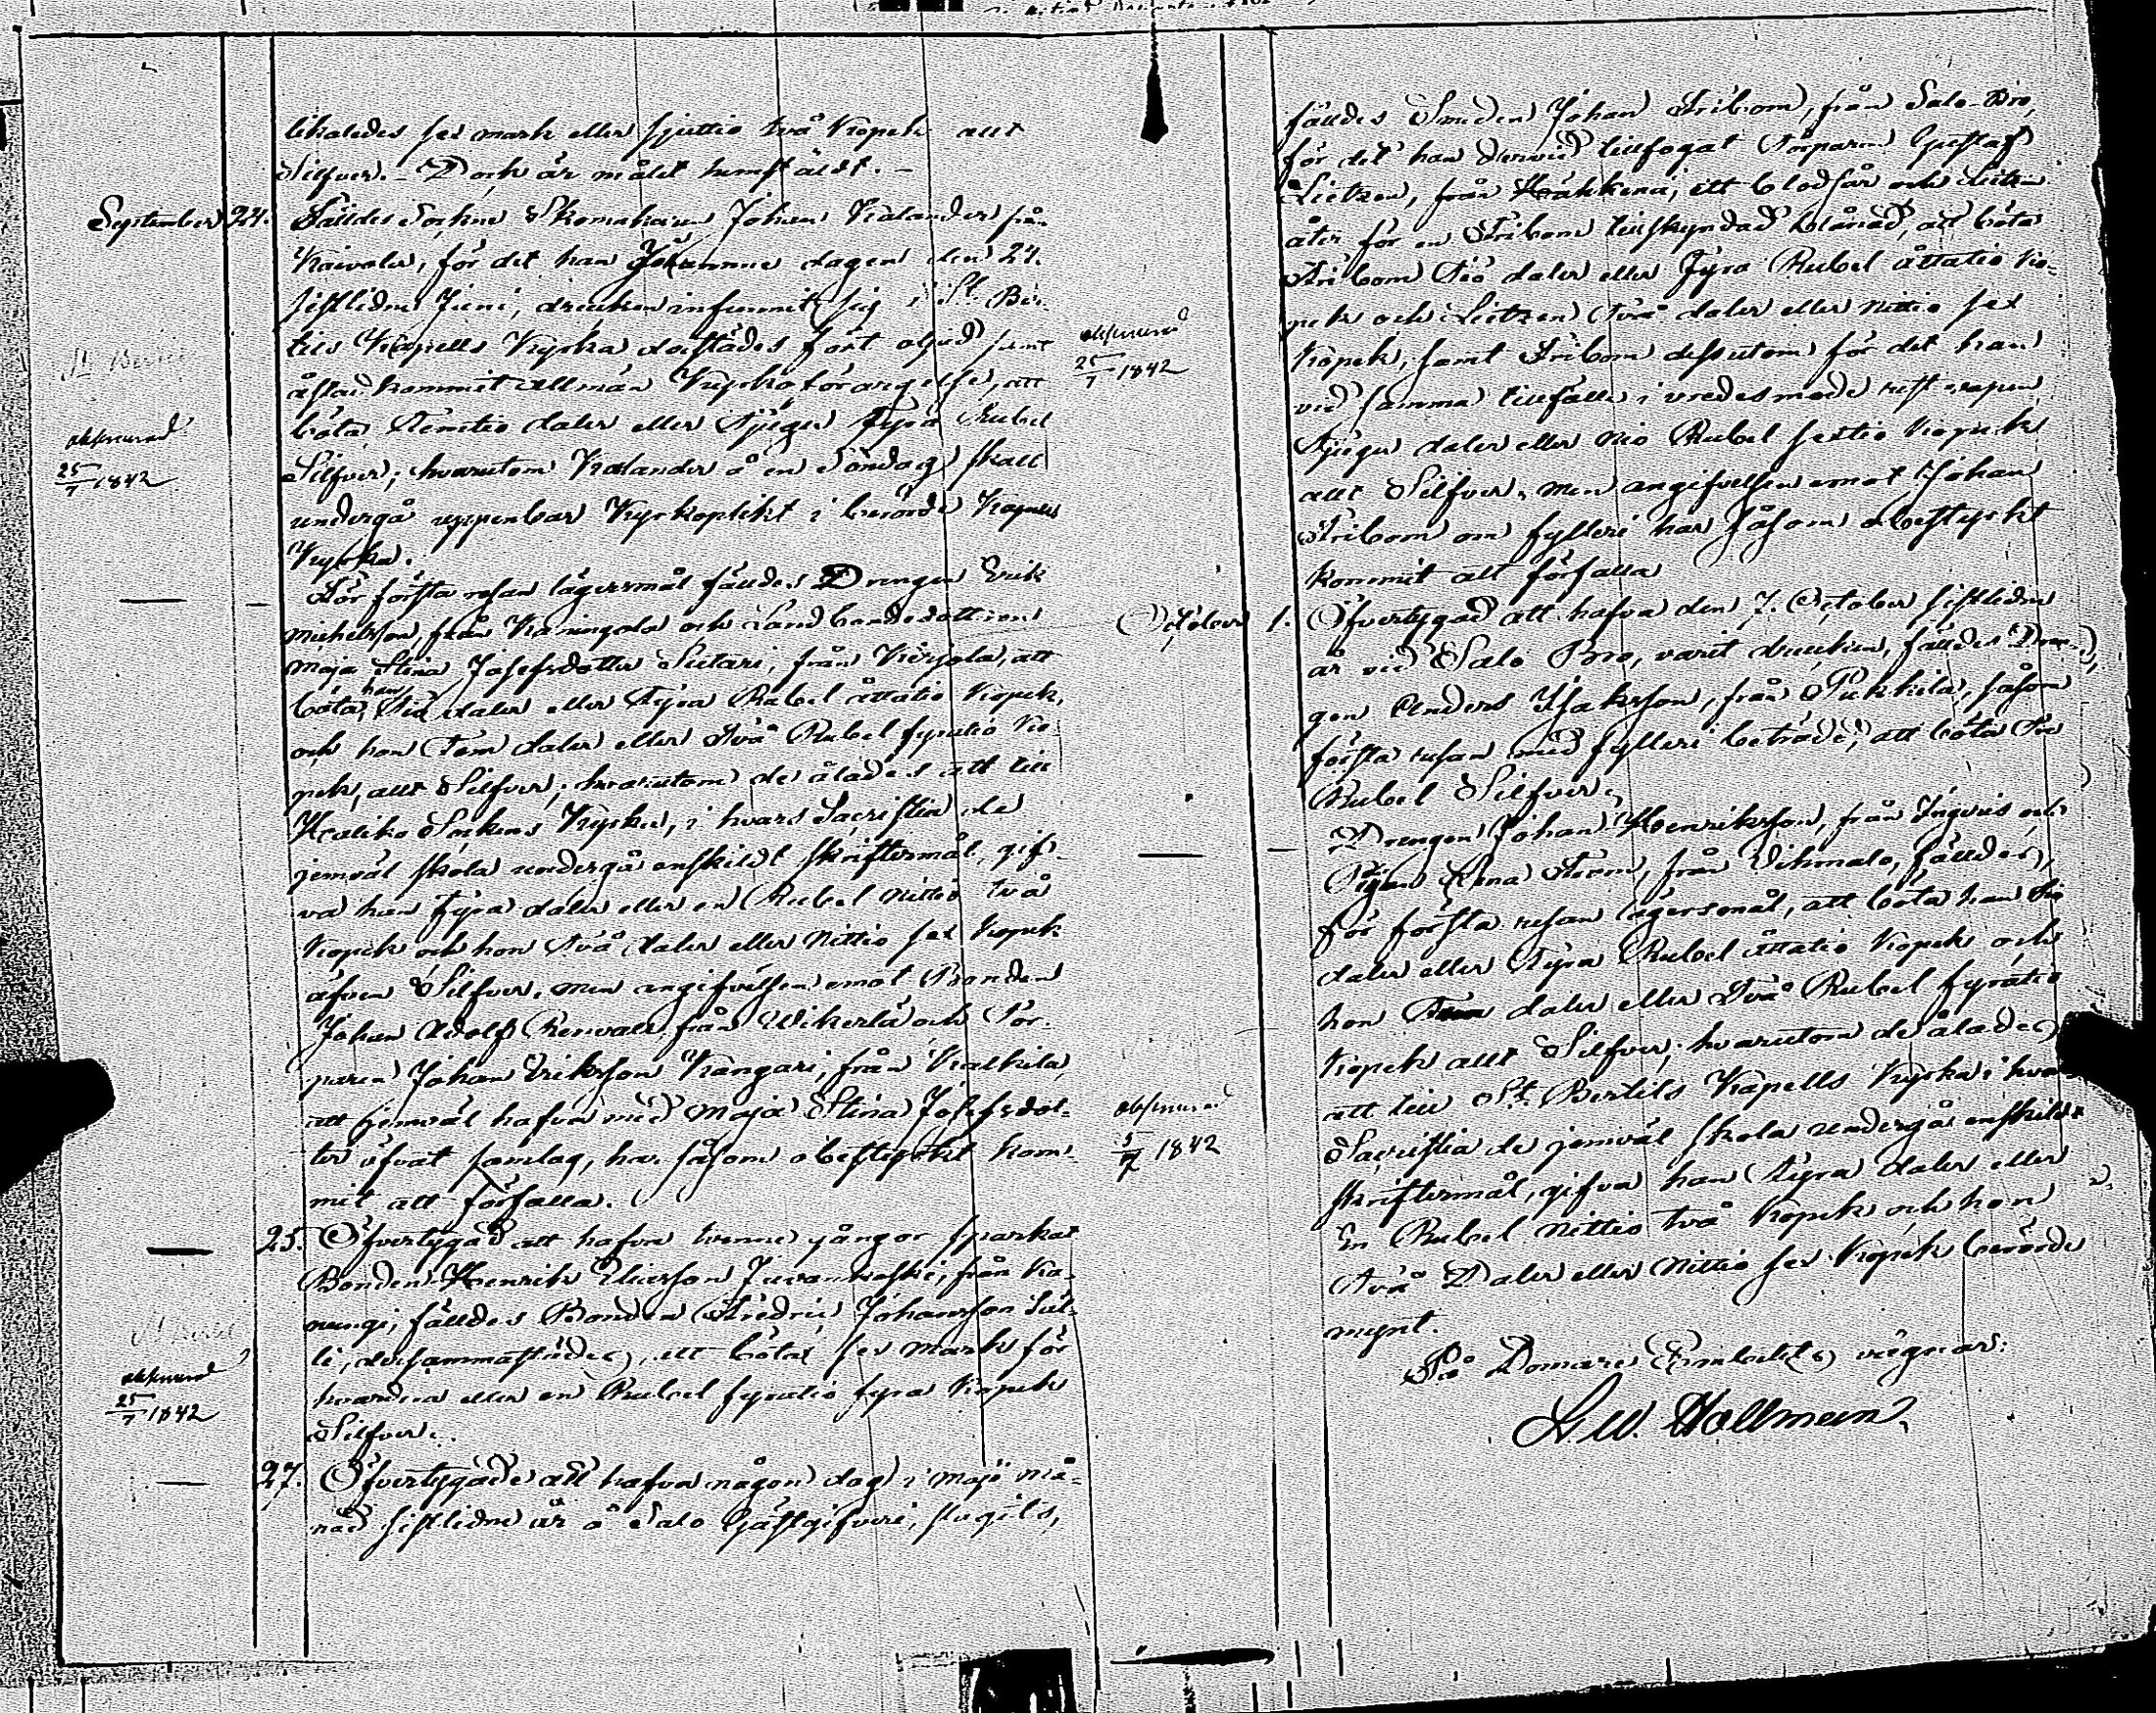 likaledes sex mark eller sjuttio två kopek allt
Silfver. – Dock är målet hemstäldt. –
September 24. Fälldes Sockne Skomakaren Johan Kalander från
Kaivola, för det han Johannue dagen den 24.
sistlidne Juni, drucken infunnit sig i St. Ber-
tils Kapells Kyrka derstädes fört oljud samt
åstadkommit allmän Kyrko förargelse, att
böta Femtio daler eller Tjugu fyra Rubel
Silfver; hvarutom Kalander å en Söndag skall
undergå uppenbar Kyrkoplikt i berörde Kapells
Kyrka.
afsunnad
25/7 1842
— För första resan lägersmål fälldes Drengen Erik
Michelsson, från Kaningola och Landbondedottren
Maja Stina Josefsdotter Sutari, från Kirjola, att
böta, han Tio daler eller Fyra Rubel åttatio Kopek,
och hon Fem daler eller Två Rubel fyratio Ko-
pek, allt Silfver; hvarutom de ålades att till
Haliko Sockens Kyrka, i hvars Sacristia de
jemväl skola undergå enskildt skriftermål, gif-
va han fyra daler eller en Rubel Nittio två
Kopek och hon Två daler eller Nittio sex Kopek
äfven Silfver. men angifvelsen emot Bonden
Johan Adolf Renvall från Wikerlä och Tor-
paren Johan Eriksson Kangari, från Kalkila
att jemväl hafva med Maja Stina Josefsdot-
ter öfvat samlag, har såsom obestyrkt kom-
mit att förfalla.
— 25. Öfvertygad att hafva tvenne gångor sparkat
Bonden Henrik Eliasson Juvankoski, från Ka-
nungi, fälldes Bonden Fredric Johansson
li, dersammastädes, att böta sex mark för
hvardera eller en Rubel fyratio fyra Kopek
Silfver.
25/7 1842
— 27. Öfvertygade att hafva någon dag i Maji må-
nad sistlidne år å Salo Gästgifveri, slagits,
fälldes Smeden Johan Fribom, från Salo Bro,
för det han dervid tillfogat Torparen Gustaf
Lietzen, från Hähkenä, ett blodsår och Lietzen
åter för en Fribom tillskyndad blånad, att böta
Fribom Tio daler eller Fyra Rubel åttatio Ko-
pek och Lietzen Två daler eller Nittio sex
Kopek, samt Fribom dessutom för det han
vid samma tillfälle i vredesmode rest vapen
Tjugu daler eller nio Rubel sextio Kopek
allt Silfver. men angifvelsen emot Johan
Fribom om fylleri har såsom obestyrkt
kommit att förfalla
25/7 1842
October 1. Öfvertygad att hafva den 7. October sistlidne
år vid Salo Bro, varit drucken, fälldes Dren-
gen Anders Isaksson, från Pukkila, såsom
första resan med fylleri beträdd, att böta Tio
Rubel Silfver.
— Drengen Johan Henriksson, från Ingvis och
Pigan Lena Ström, från Vihmalo, fälldes,
för första resan lägersmål, att böta han Tio
daler eller Fyra Rubel åttatio Kopek och
hon Fem daler eller Två Rubel fyratio
Kopek allt Silfver; hvarutom de ålades
att till St. Bertils Kapells Kyrka i hvars
Sacristia de jemväl skola undergå enskildt
skriftermål, gifva han Fyra daler eller
En Rubel Nittio två Kopek och hon
Två Daler eller Nittio sex Kopek berörde
mynt.
1842
På Domare Embetets vägnar:
Hollmen